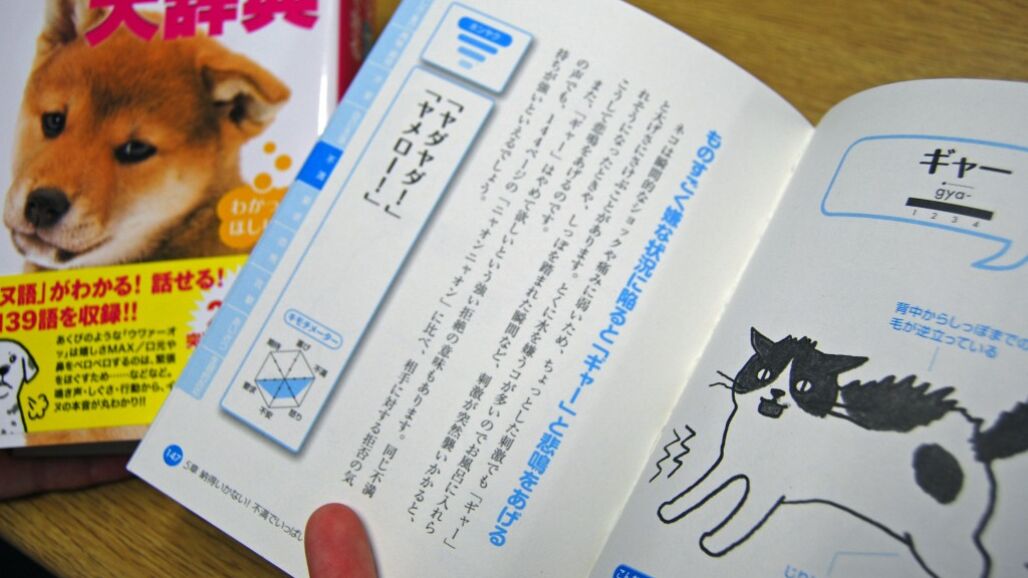 大辞典
わかっ
はし
ヌ語」がわかる! 話せる!
139語を収録!!
あくびのような「ウヴァーオ
ッ」は嬉しさMAX/口元や
鼻をペロペロするのは、緊張
をほぐすため……などなど、
鳴き声・しぐさ・行動から、イ
ヌの本音が丸わかり!!
ギャー
gya-
1 2 3 4
背中からしっぽまでの
毛が逆立っている
ものすごく嫌な状況に陥ると「ギャー」と悲鳴をあげる
ネコは瞬間的なショックや痛みに弱いため、ちょっとした刺激でも「ギャー」
と大げさにさけぶことがあります。とくに水を嫌うコが多いのでお風呂に入れら
れそうになったときや、しっぽを踏まれた瞬間など、刺激が突然襲いかかると、
こうして悲鳴をあげるのです。
また、「ギャー」はやめて欲しいという強い拒絶の意味もあります。同じ不満
の声でも、144ページの「ニャオンニャオン」に比べ、相手に対する拒否の気
持ちが強いといえるでしょう。
ホンヤク
「ヤダヤダー!」
「ヤメロー!」
キモチメーター
喜び
不満
怒り
不安
要求
不満
147
5章 納得いかない! 不満でいっぱい